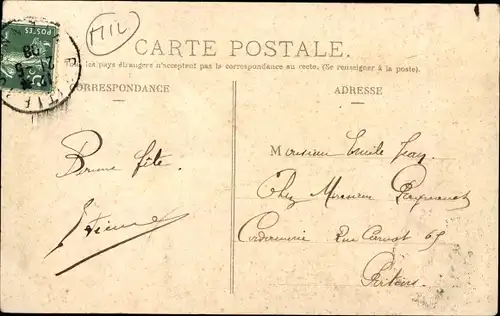 MIL
POSTES
CARTE POSTALE.
Tous les pays étrangers n'acceptent pas la correspondance au recto. (Se renseigner à la poste).
CORRESPONDANCE
ADRESSE
Bonne fête.
Monsieur Emile Jean
Chez Monsieur
Cordonnerie Rue Carnot 65
Poitiers